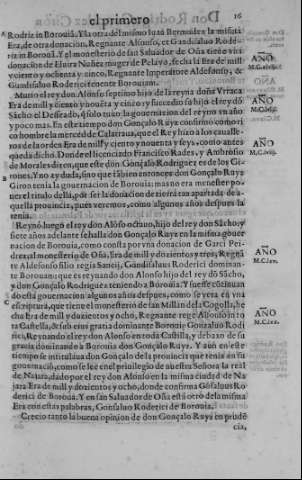 el primero 16
Rodriz in Borouia. Y la otra del mismo Iuan Bermudez la misma
Era, de otra donacion, Regnante Alfonso, et Gundisaluo Roderi-
riz in Borouia. Y el monesterio de san Saluador de Oña tiene vna
donacion de Eluira Nuñez muger de Pelayo, fecha la Era de mill
y ciento y ochenta y cinco, Regnante Imperatore Aldefonso, &
Gundisaluo Roderici tenente Borouiam.
Murio el rey don Alonso septimo hijo de la reyna doña Vrraca
Era de mill y ciento y nouenta y cinco y succedio su hijo el rey dō
Sācho el Desseado, q̄ solo tuuo la gouernacion del reyno vn año
y poco mas. En este tiempo don Gonçalo Ruyz consintio como ri-
co hombre la merced de Calatraua, que el Rey hizo a los cauall-
os de la orden Era de mill y ciento y nouenta y seys, como antes
queda dicho. Donde el licenciado Francisco Rades, y Ambrosio
de Morales dizen, que este don Gonçalo Rodriguez es de los Gi-
rones. Y no ay duda, sino que sabiendo entonces don Gonçalo Ruyz
Giron tenia la gouernacion de Borouia: mas no era menester po-
ner el titulo della, por ser la donacion de tierra tan apartada de a-
quella prouincia, pues veremos, como algunos años despues la
tenia.
Reynó luego el rey don Alōso octauo, hijo del rey don Sācho, y
siete años adelante se halla don Gonçalo Ruyz en la misma gouer
nacion de Borouia, como consta por vna donacion de Garci Pei-
drez, al monesterio de Oña, Era de mill y dozientos y tres, Regnā
te Aldefonso filio regis Sancij, Gundisaluus Roderici dominan-
te Borouiam; que es reynando don Alonso hijo del rey dō Sācho,
y don Gonçalo Rodriguez teniendo a Borouia. Y fuesse cōtinuan
do esta gouernacion algunos años despues, como se vera en vna
escriptura, que tiene el monesterio de san Millan de la Cogolla, he
cha Era de mill y dozientos y ocho, Regnante rege Alfonso in to
ta Castella, & sub eius gratia dominante Borouij Gonzaluo Rodri
ci, Reynando el rey don Alonso en toda Castilla, y debaxo de su
gracia dominando a Borouia don Gonçalo Ruyz. Y aun en este
tiempo se intitulaua don Gonçalo de la prouincia que tenia en su
gouernació, como se lee en el priuilegio de nuestra Señora la real
de Najara, dado por el rey don Alonso en la misma ciudad de Na
jara Era de mill y dozientos y ocho, donde confirma Gōsaluus Ro
derici de Borouia. Y en san Saluador de Oña está otro de la misma
Era con estas palabras, Gonsaluo Roderici de Borouia.
Crecio tanto la buena opinion de don Gonçalo Ruyz en prudē
cia,
AÑO
AÑO
AÑO
AÑO
M.C.lxv.
AÑO
M.C.lxx.